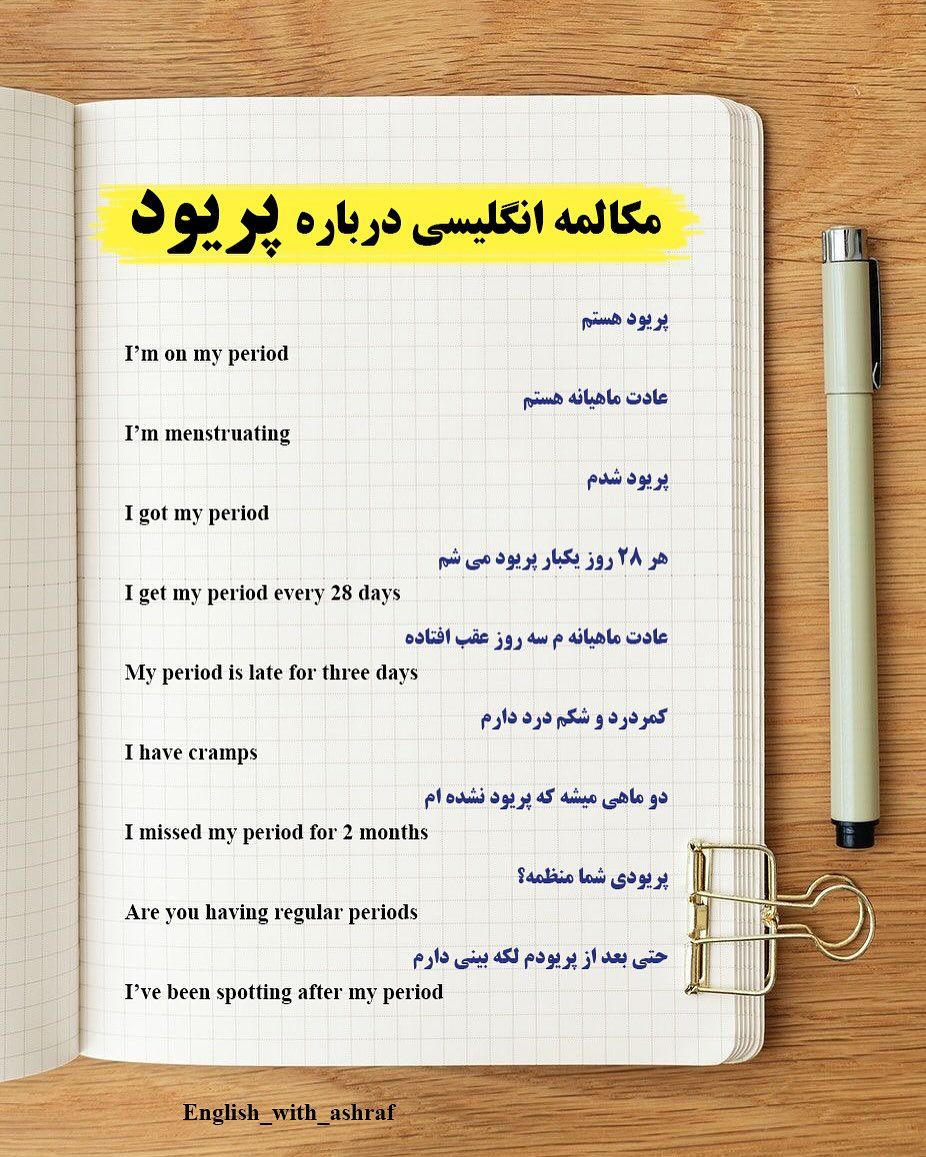 مکالمه انگلیسی درباره پریود
پریود هستم
I'm on my period
عادت ماهیانه هستم
I'm menstruating
پریود شدم
I got my period
هر ۲۸ روز یکبار پریود می شم
I get my period every 28 days
عادت ماهیانه م سه روز عقب افتاده
My period is late for three days
کمردرد و شکم درد دارم
I have cramps
دو ماهی میشه که پریود نشده ام
I missed my period for 2 months
پریودی شما منظمه؟
Are you having regular periods
حتی بعد از پریودم لکه بینی دارم
I've been spotting after my period
English_with_ashraf